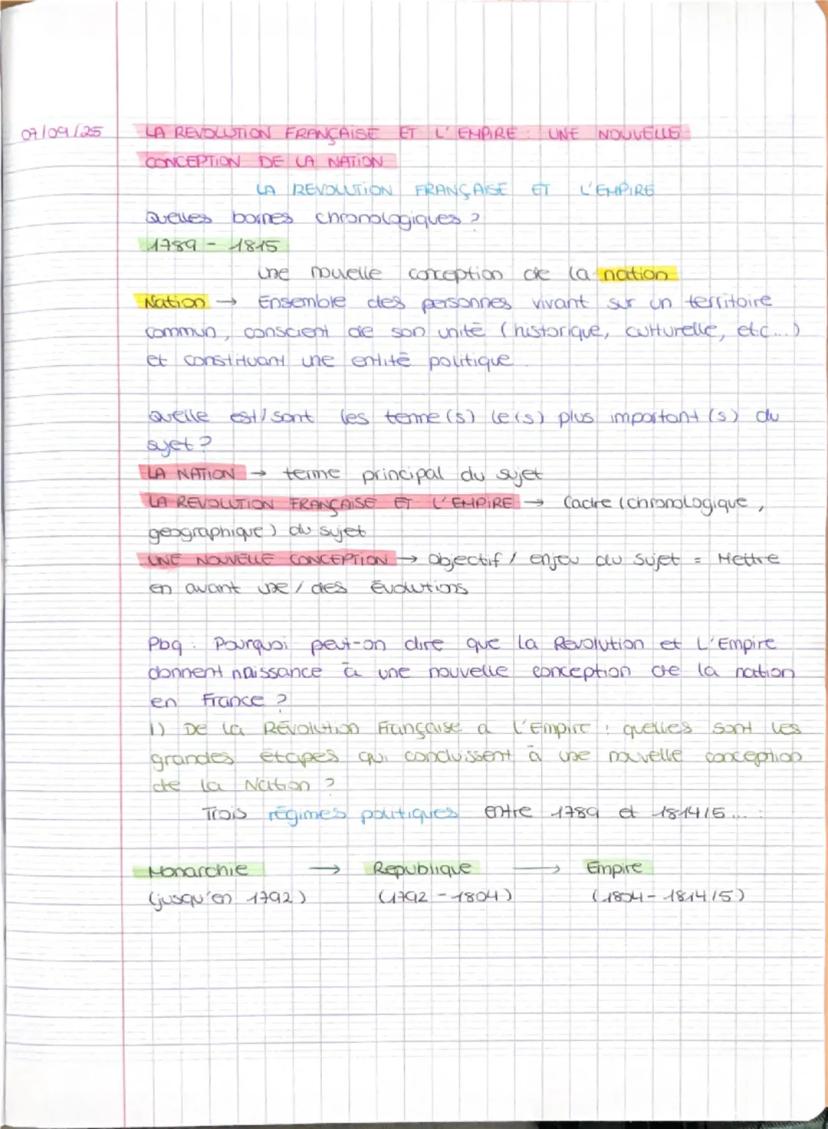 07/09/25 LA REVOLUTION FRANÇAISE ET L'EMPIRE : UNE NOUVELLE
CONCEPTION DE LA NATION
LA REVOLUTION FRANÇAISE ET L'EMPIRE
Quelles bornes chronologiques ?
1789 - 1815
Une nouvelle conception de la nation
Nation → Ensemble des personnes vivant sur un territoire
commun, conscient de son unité (historique, culturelle, etc...)
et constituant une entité politique.
Quelle est/sont les terme(s) le(s) plus important(s) du
sujet ?
LA NATION → terme principal du sujet
LA REVOLUTION FRANÇAISE ET L'EMPIRE → Cadre (chronologique,
geographique) du sujet
UNE NOUVELLE CONCEPTION → Objectif / enjeu du sujet = Mettre
en avant une / des évolutions
Pbq : Pourquoi peut-on dire que la Revolution et L'Empire
donnent naissance à une nouvelle conception de la nation
en France ?
1) De la Révolution Française a l'Empire : quelles sont les
grandes étapes qui conduissent à une nouvelle conception
de la Nation ?
Trois régimes politiques entre 1789 et 1814/5... :
Monarchie → Republique → Empire
(jusqu'en 1792) (1792 - 1804) (1804 - 1814/5)